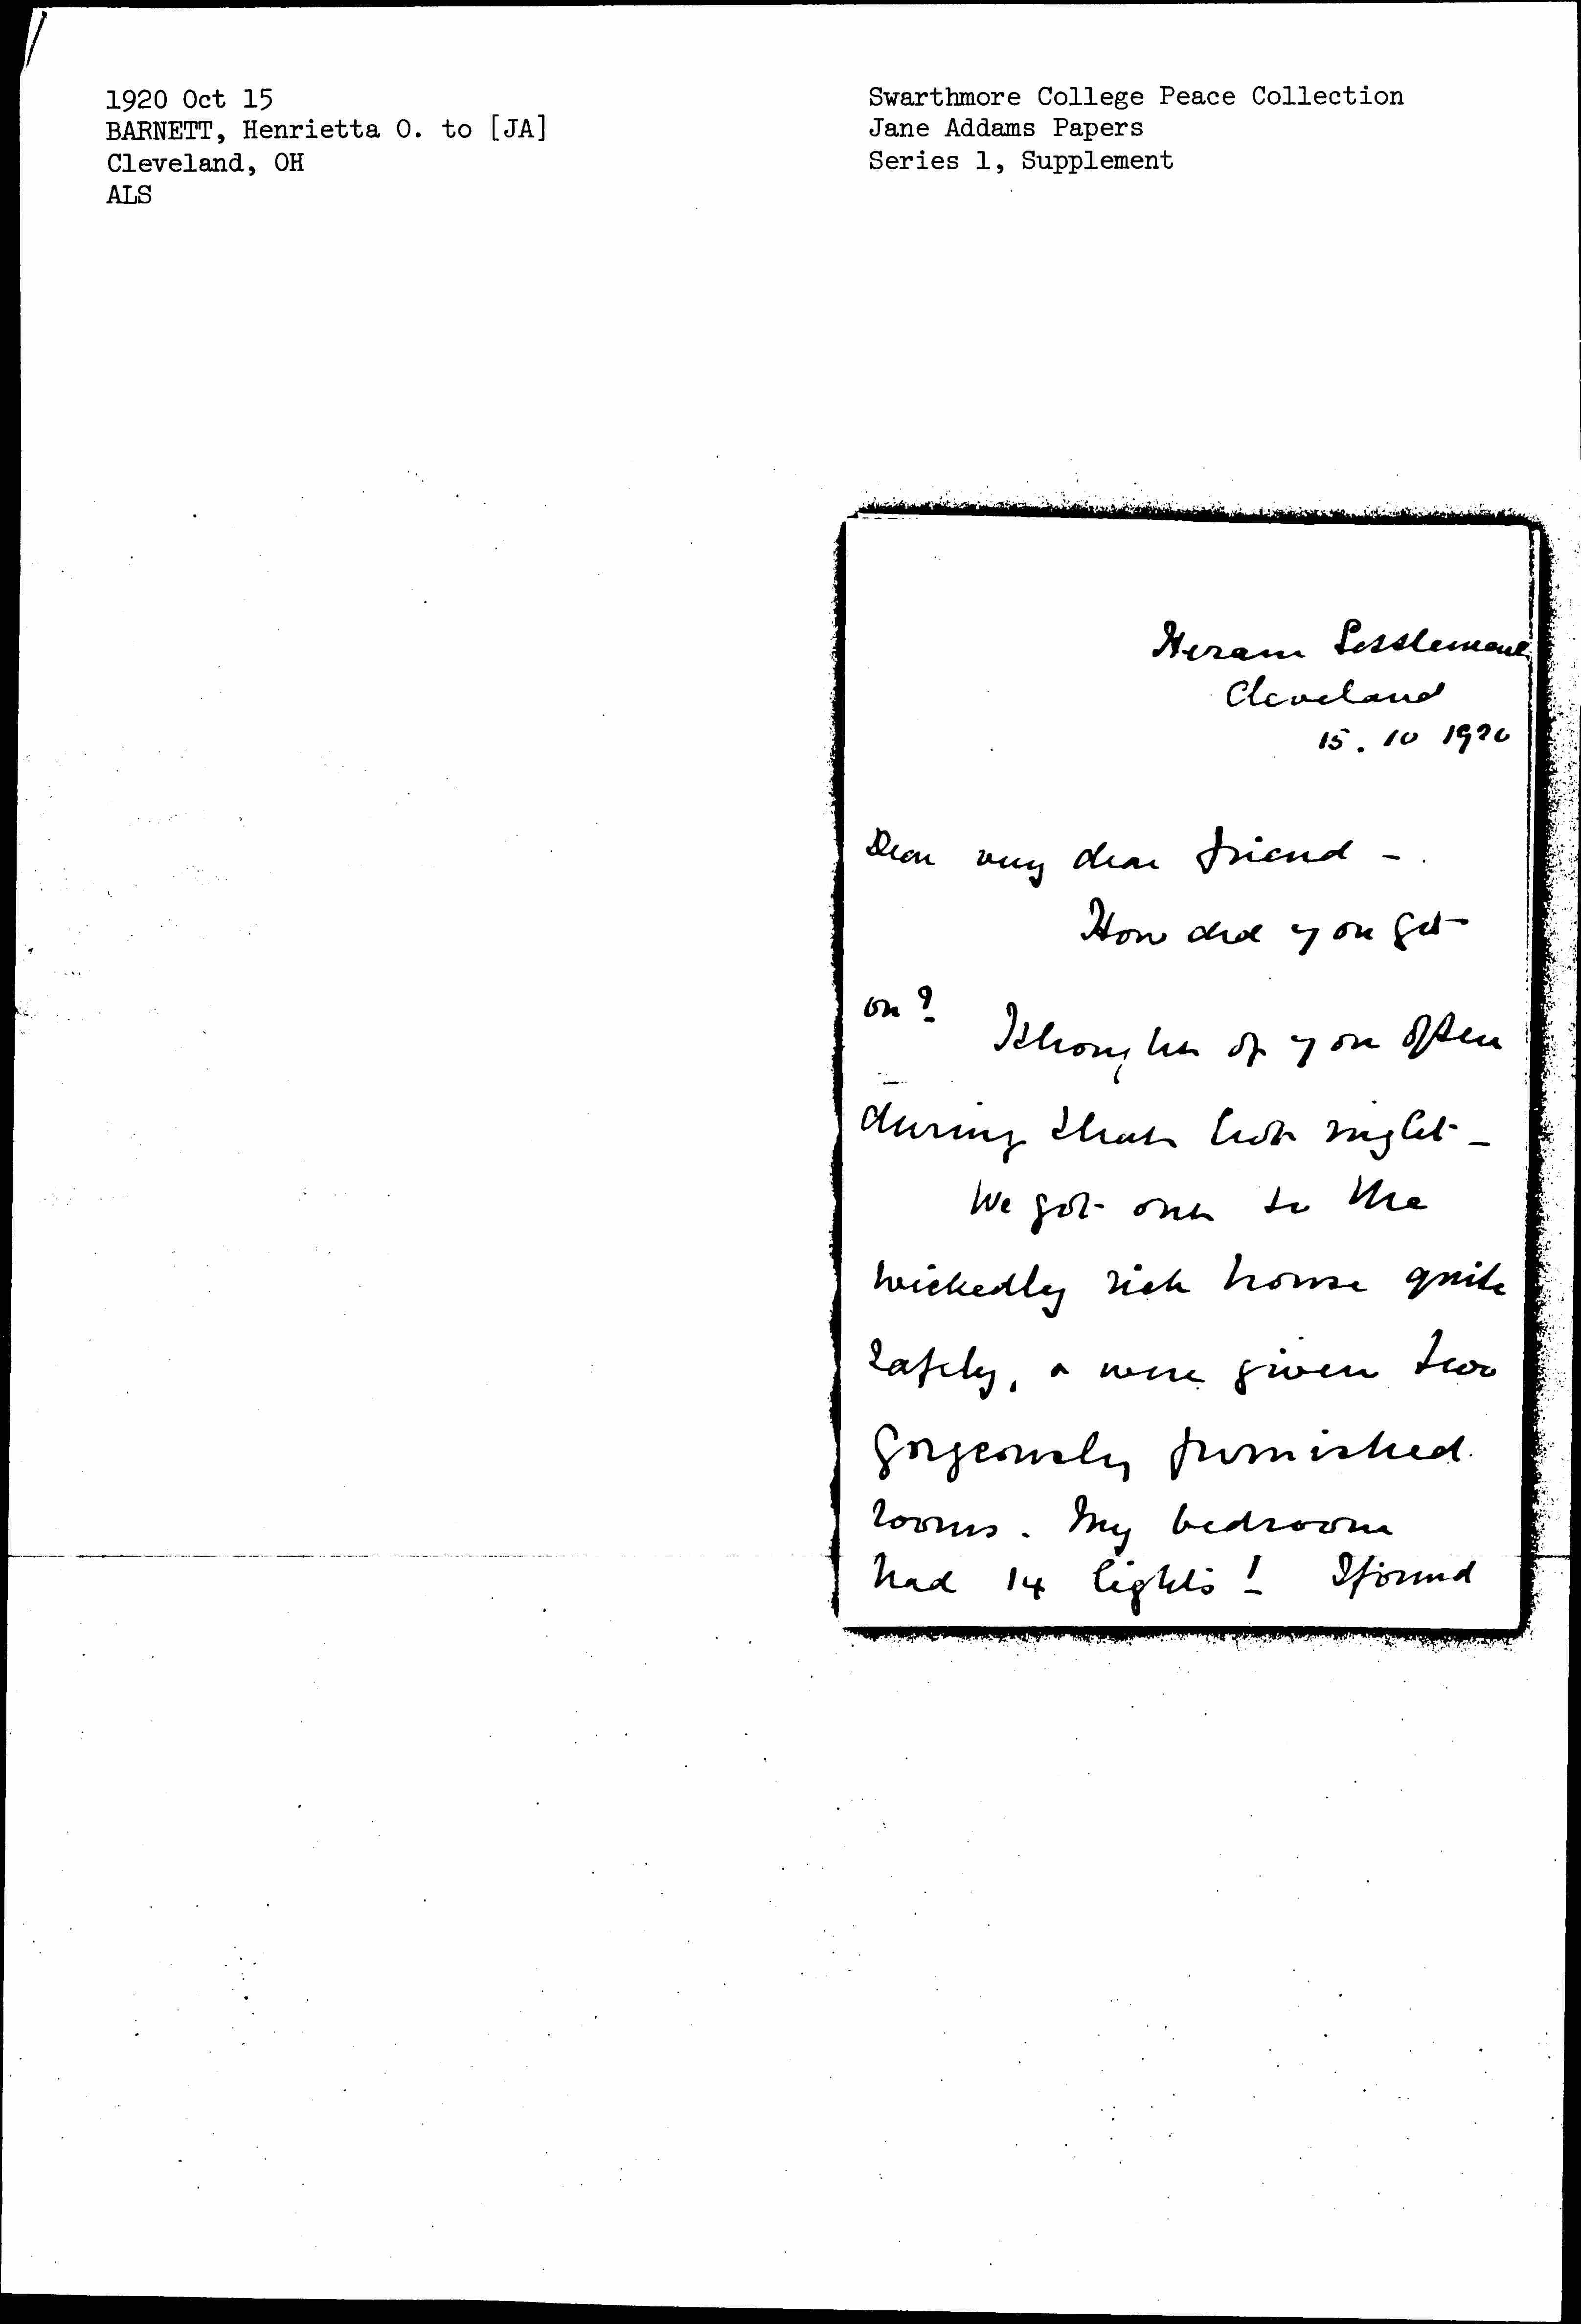 1920 Oct 15
BARNETT, Henrietta O. to [JA]
Cleveland, OH
ALS
Swarthmore College Peace Collection
Jane Addams Papers
Series 1, Supplement
Hiram Settlement
Cleveland
15. 10 1920
Dear very dear friend -
How did you get
on?
I thought of you often
during that hot night -
We got over to the
wickedly rich house quite
safely, & were given two
gorgeously furnished
rooms. My bedroom
had 14 lights! I found